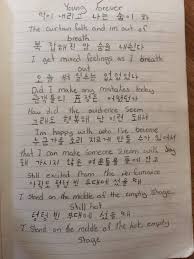 Young forever
막이 내리고 나는 숨이 차
The curtain falls and im out of
breath
복잡해진 맘 숨을 내쉰다
I get mixed feelings as I breath
out
오늘 뭐 실수는 없었었나
Did I make any mistakes today
관객들의 표정은 어땠던가
How did the audience seem
그래도 행복해 난 이런 내가
Im happy with who I've become
누군가를 소리 지르게 만들 수가 있어서
That I can make someone scream with joy
채 가시지 않은 여운들을 품에 안고
Still excited from the performance
아직도 텅빈 무대에 섰을 때
I stand on the middle of the empty stage
Still hot
텅텅 빈 무대에 섰을 때
I stand on the middle of the hot empty
stage